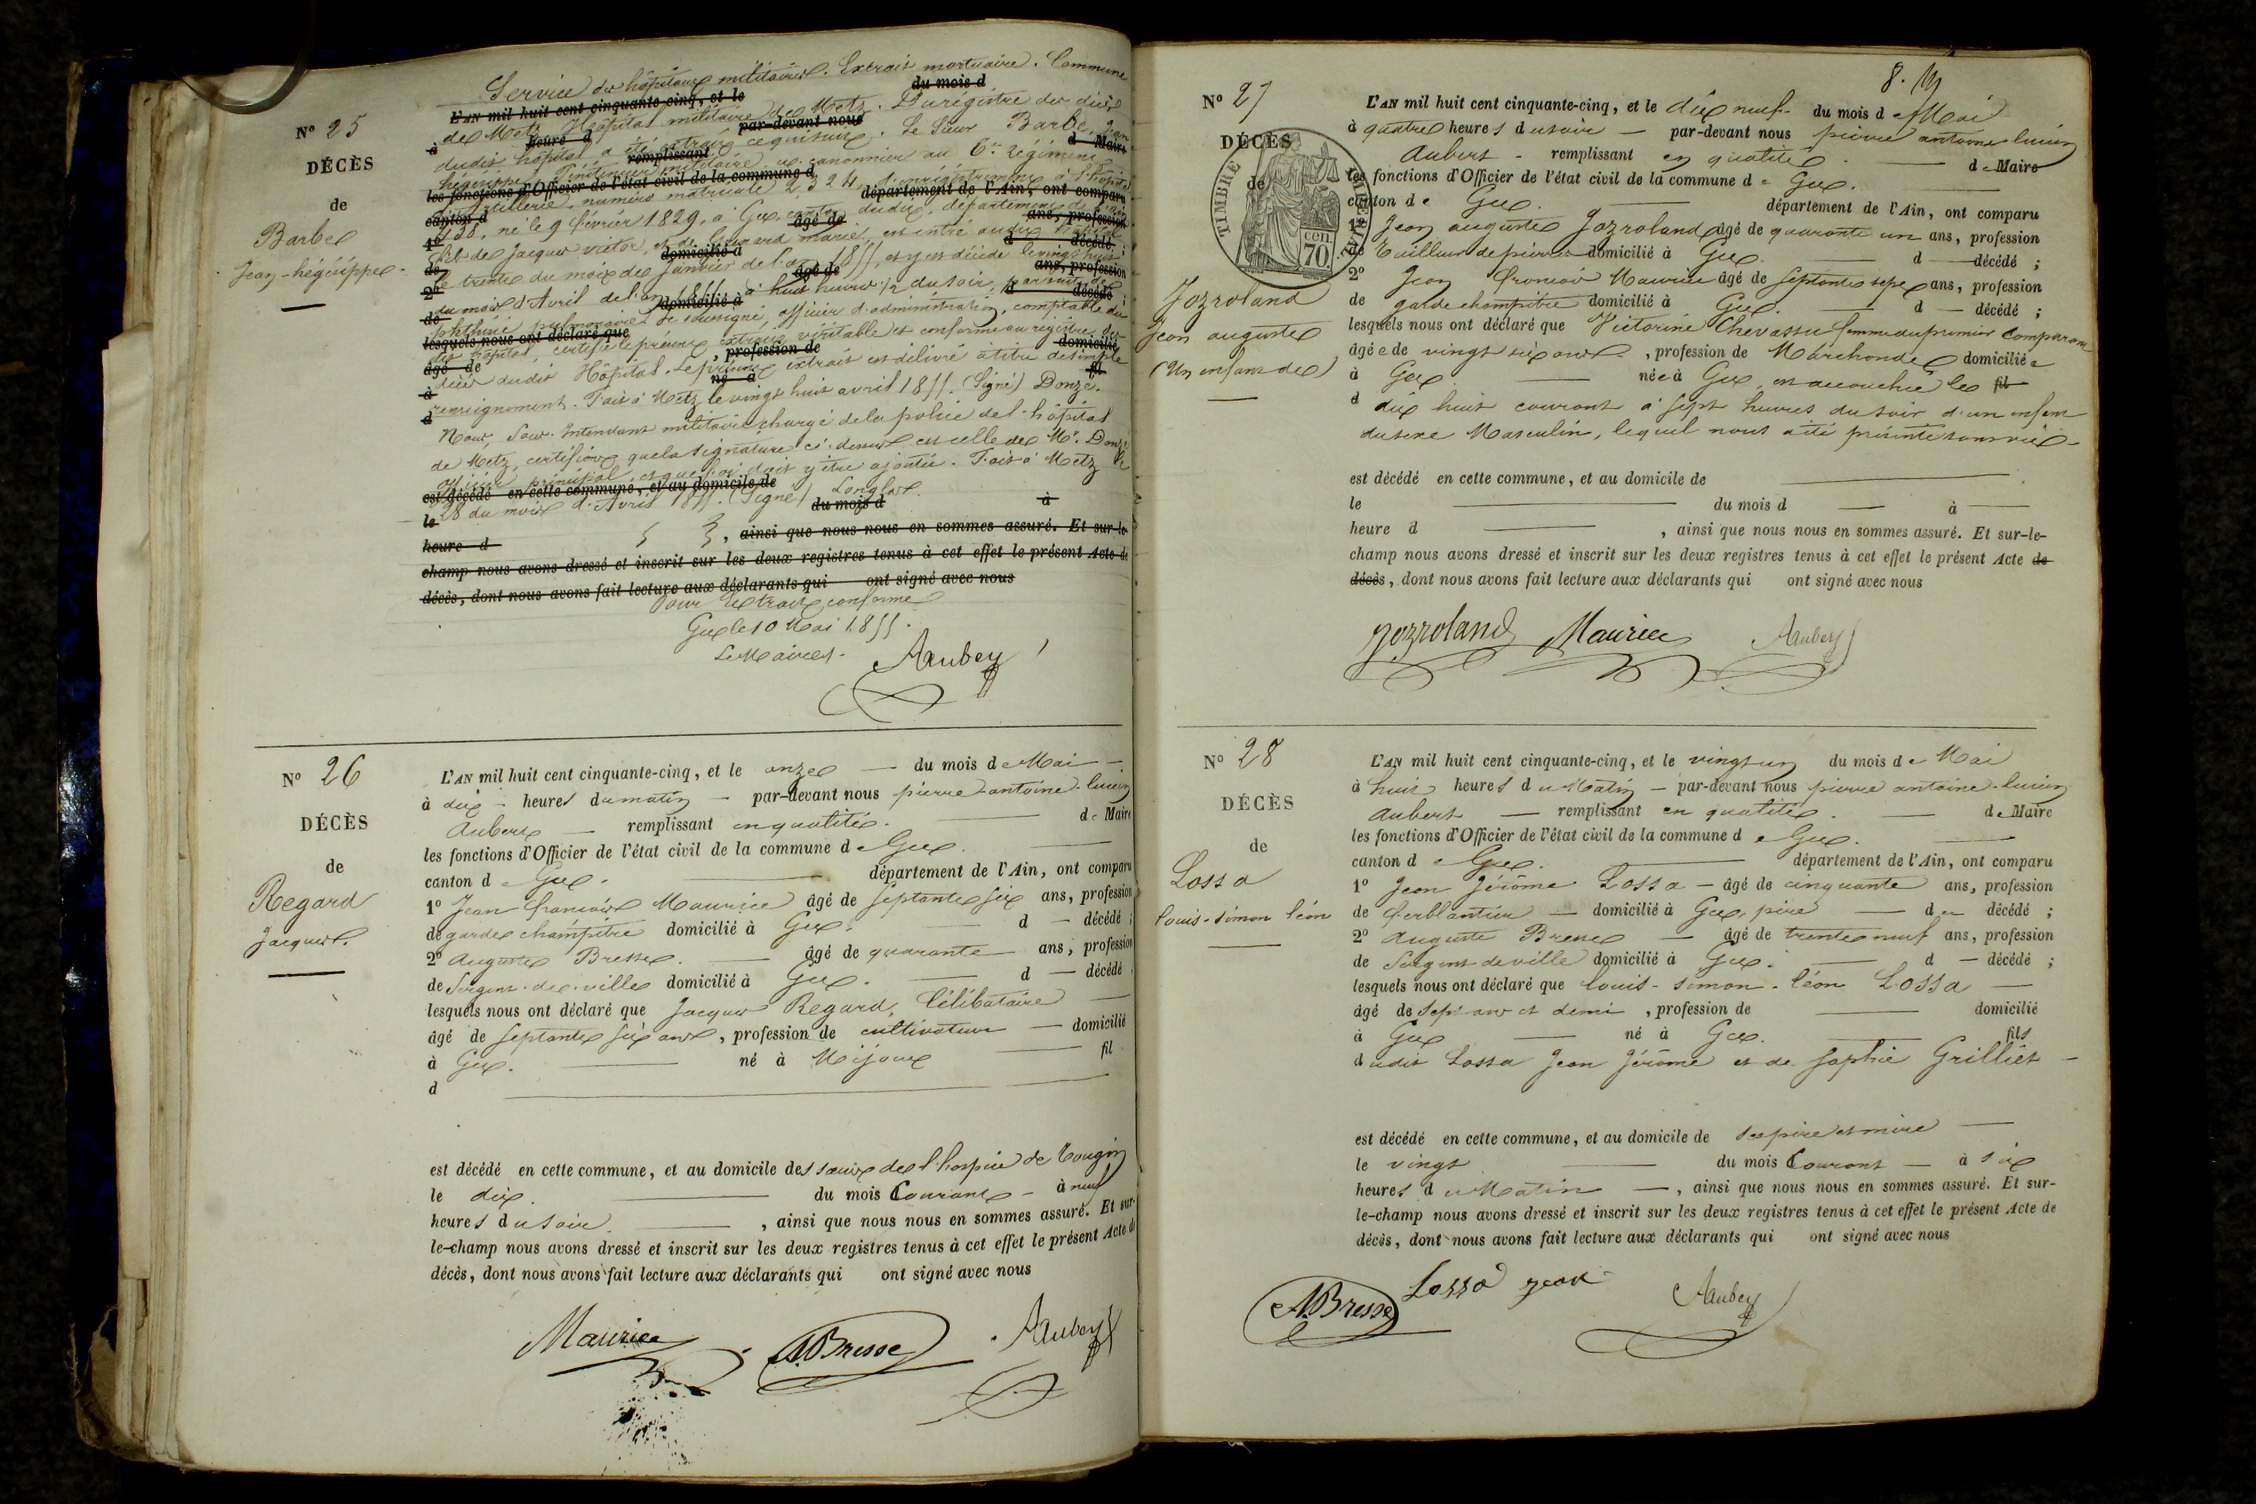 Service des hôpitaux militaires. Extrait mortuaire. Commune
L'AN mil huit cent cinquante-cinq, et le du mois d
de Metz. Hôpital militaire de Metz. Du régistre des décès
à heure d par-devant nous
dudit hôpital a été extrait ce qui suit. Le Sieur Barbe, Jean
remplissant d Maire
hégésippe, canonnier au 6e régiment
les fonctions d'Officier de l'état civil de la commune d
d'artillerie, numéro matricule 2324,
département de l'Ain, ont comparu
canton d
né le 9 février 1829, à Gex, canton dudit, département de l'Ain
1º âgé de ans, profession
fils de Jacques victor, et de marie, est entré audit hôpital
de domicilié à d décédé ;
le trente du mois de Janvier de l'an 1855, et y est décédé le vingt huit
2º âgé de ans, profession
du mois d'Avril de l'an 1855 à huit heures 1/2 du soir, par suite de
de domicilié à d décédé ;
phthisie pulmonaire. Je soussigné, officier d'administration, comptable du
lesquels nous ont déclaré que
dit hôpital, certifie le présent extrait véritable et conforme au régistre des
âgé de , profession de domicilié
décès dudit Hôpital. Le présent extrait est délivré à titre de simple
à né à fil
renseignement. Fait à Metz, le vingt huit avril 1855. (Signé) Donze.
d
Nous, Sous-Intendant militaire chargé de la police de l'hôpital
de Metz, certifions que la signature ci-dessus est celle de Mr. Donze
officier principal, et que foi doit y être ajoutée. Fait à Metz le
est décédé en cette commune, et au domicile de
28 du mois d'Avril 1855. (Signé)
le du mois d à
heure d , ainsi que nous nous en sommes assuré. Et sur-le-
champ nous avons dressé et inscrit sur les deux registres tenus à cet effet le présent Acte de
décès, dont nous avons fait lecture aux déclarants qui ont signé avec nous
Pour Extrait conforme
Gex le 10 Mai 1855.
Le Maire
Aaubert
Nº 25
DÉCÈS
de
Barbe
Jean-hégésippe
Nº 26
DÉCÈS
de
Regard
Jacques.
L'AN mil huit cent cinquante-cinq, et le onze du mois de Mai
à dix heures du matin par-devant nous pierre-antoine-lucien
Aubert remplissant en qualité de Maire
les fonctions d'Officier de l'état civil de la commune de Gex.
canton de Gex. département de l'Ain, ont comparu
1º Jean francois Maurice âgé de septante six ans, profession
de garde champêtre domicilié à Gex. d décédé ;
2º Auguste Bresse. âgé de quarante ans, profession
de Sergent-de-ville domicilié à Gex. d décédé
lesquels nous ont déclaré que Jacques Regard, Célibataire
âgé de septante six ans, profession de cultivateur domicilié
à Gex. né à Mijoux fil
d
est décédé en cette commune, et au domicile des sœurs de l'hospice de Tougin
le dix. du mois Courant à neuf
heures du soir , ainsi que nous nous en sommes assuré. Et sur-
le-champ nous avons dressé et inscrit sur les deux registres tenus à cet effet le présent Acte de
décès, dont nous avons fait lecture aux déclarants qui ont signé avec nous
Maurice ABresse Aaubert
Nº 27
DÉCÈS
de
TIMBRE IMPERIAL
70 CEN.
Jozroland
Jean auguste
(Un enfant de)
L'AN mil huit cent cinquante-cinq, et le dix neuf du mois de Mai
à quatre heures du soir par-devant nous pierre antoine lucien
Aubert remplissant en qualité de Maire
les fonctions d'Officier de l'état civil de la commune de Gex.
canton de Gex. département de l'Ain, ont comparu
1º Jean auguste Jozroland âgé de quarante un ans, profession
de Tailleur de pierres domicilié à Gex. d décédé ;
2º Jean francois Maurice âgé de septante sept ans, profession
de garde champêtre domicilié à Gex. d décédé ;
lesquels nous ont déclaré que Victorine Chevassu femme du premier comparant
âgée de vingt six ans, profession de Marchande domiciliée
à Gex née à Gex, est accouchée le fil
d dix huit courant à sept heures du soir d'un enfant
du sexe Masculin, lequel nous a été présenté sans vie
est décédé en cette commune, et au domicile de
le du mois d à
heure d , ainsi que nous nous en sommes assuré. Et sur-le-
champ nous avons dressé et inscrit sur les deux registres tenus à cet effet le présent Acte de
décès, dont nous avons fait lecture aux déclarants qui ont signé avec nous
Jozroland Maurice Aaubert
Nº 28
DÉCÈS
de
Lossa
louis-simon léon
L'AN mil huit cent cinquante-cinq, et le vingt un du mois de Mai
à huit heures du Matin par-devant nous pierre antoine lucien
Aubert remplissant en qualité de Maire
les fonctions d'Officier de l'état civil de la commune de Gex.
canton de Gex. département de l'Ain, ont comparu
1º Jean Jérôme Lossa âgé de cinquante ans, profession
de ferblantier domicilié à Gex, père du décédé ;
2º Auguste Bresse âgé de trente neuf ans, profession
de Sergent de ville domicilié à Gex. d décédé ;
lesquels nous ont déclaré que louis-simon-léon Lossa
âgé de sept ans et demi , profession de domicilié
à Gex né à Gex. fils
dudit Lossa Jean Jérôme et de Sophie Grilliet
est décédé en cette commune, et au domicile de ses père et mère
le vingt du mois Courant à six
heures du Matin , ainsi que nous nous en sommes assuré. Et sur-
le-champ nous avons dressé et inscrit sur les deux registres tenus à cet effet le présent Acte de
décès, dont nous avons fait lecture aux déclarants qui ont signé avec nous
ABresse Lossa jean Aaubert